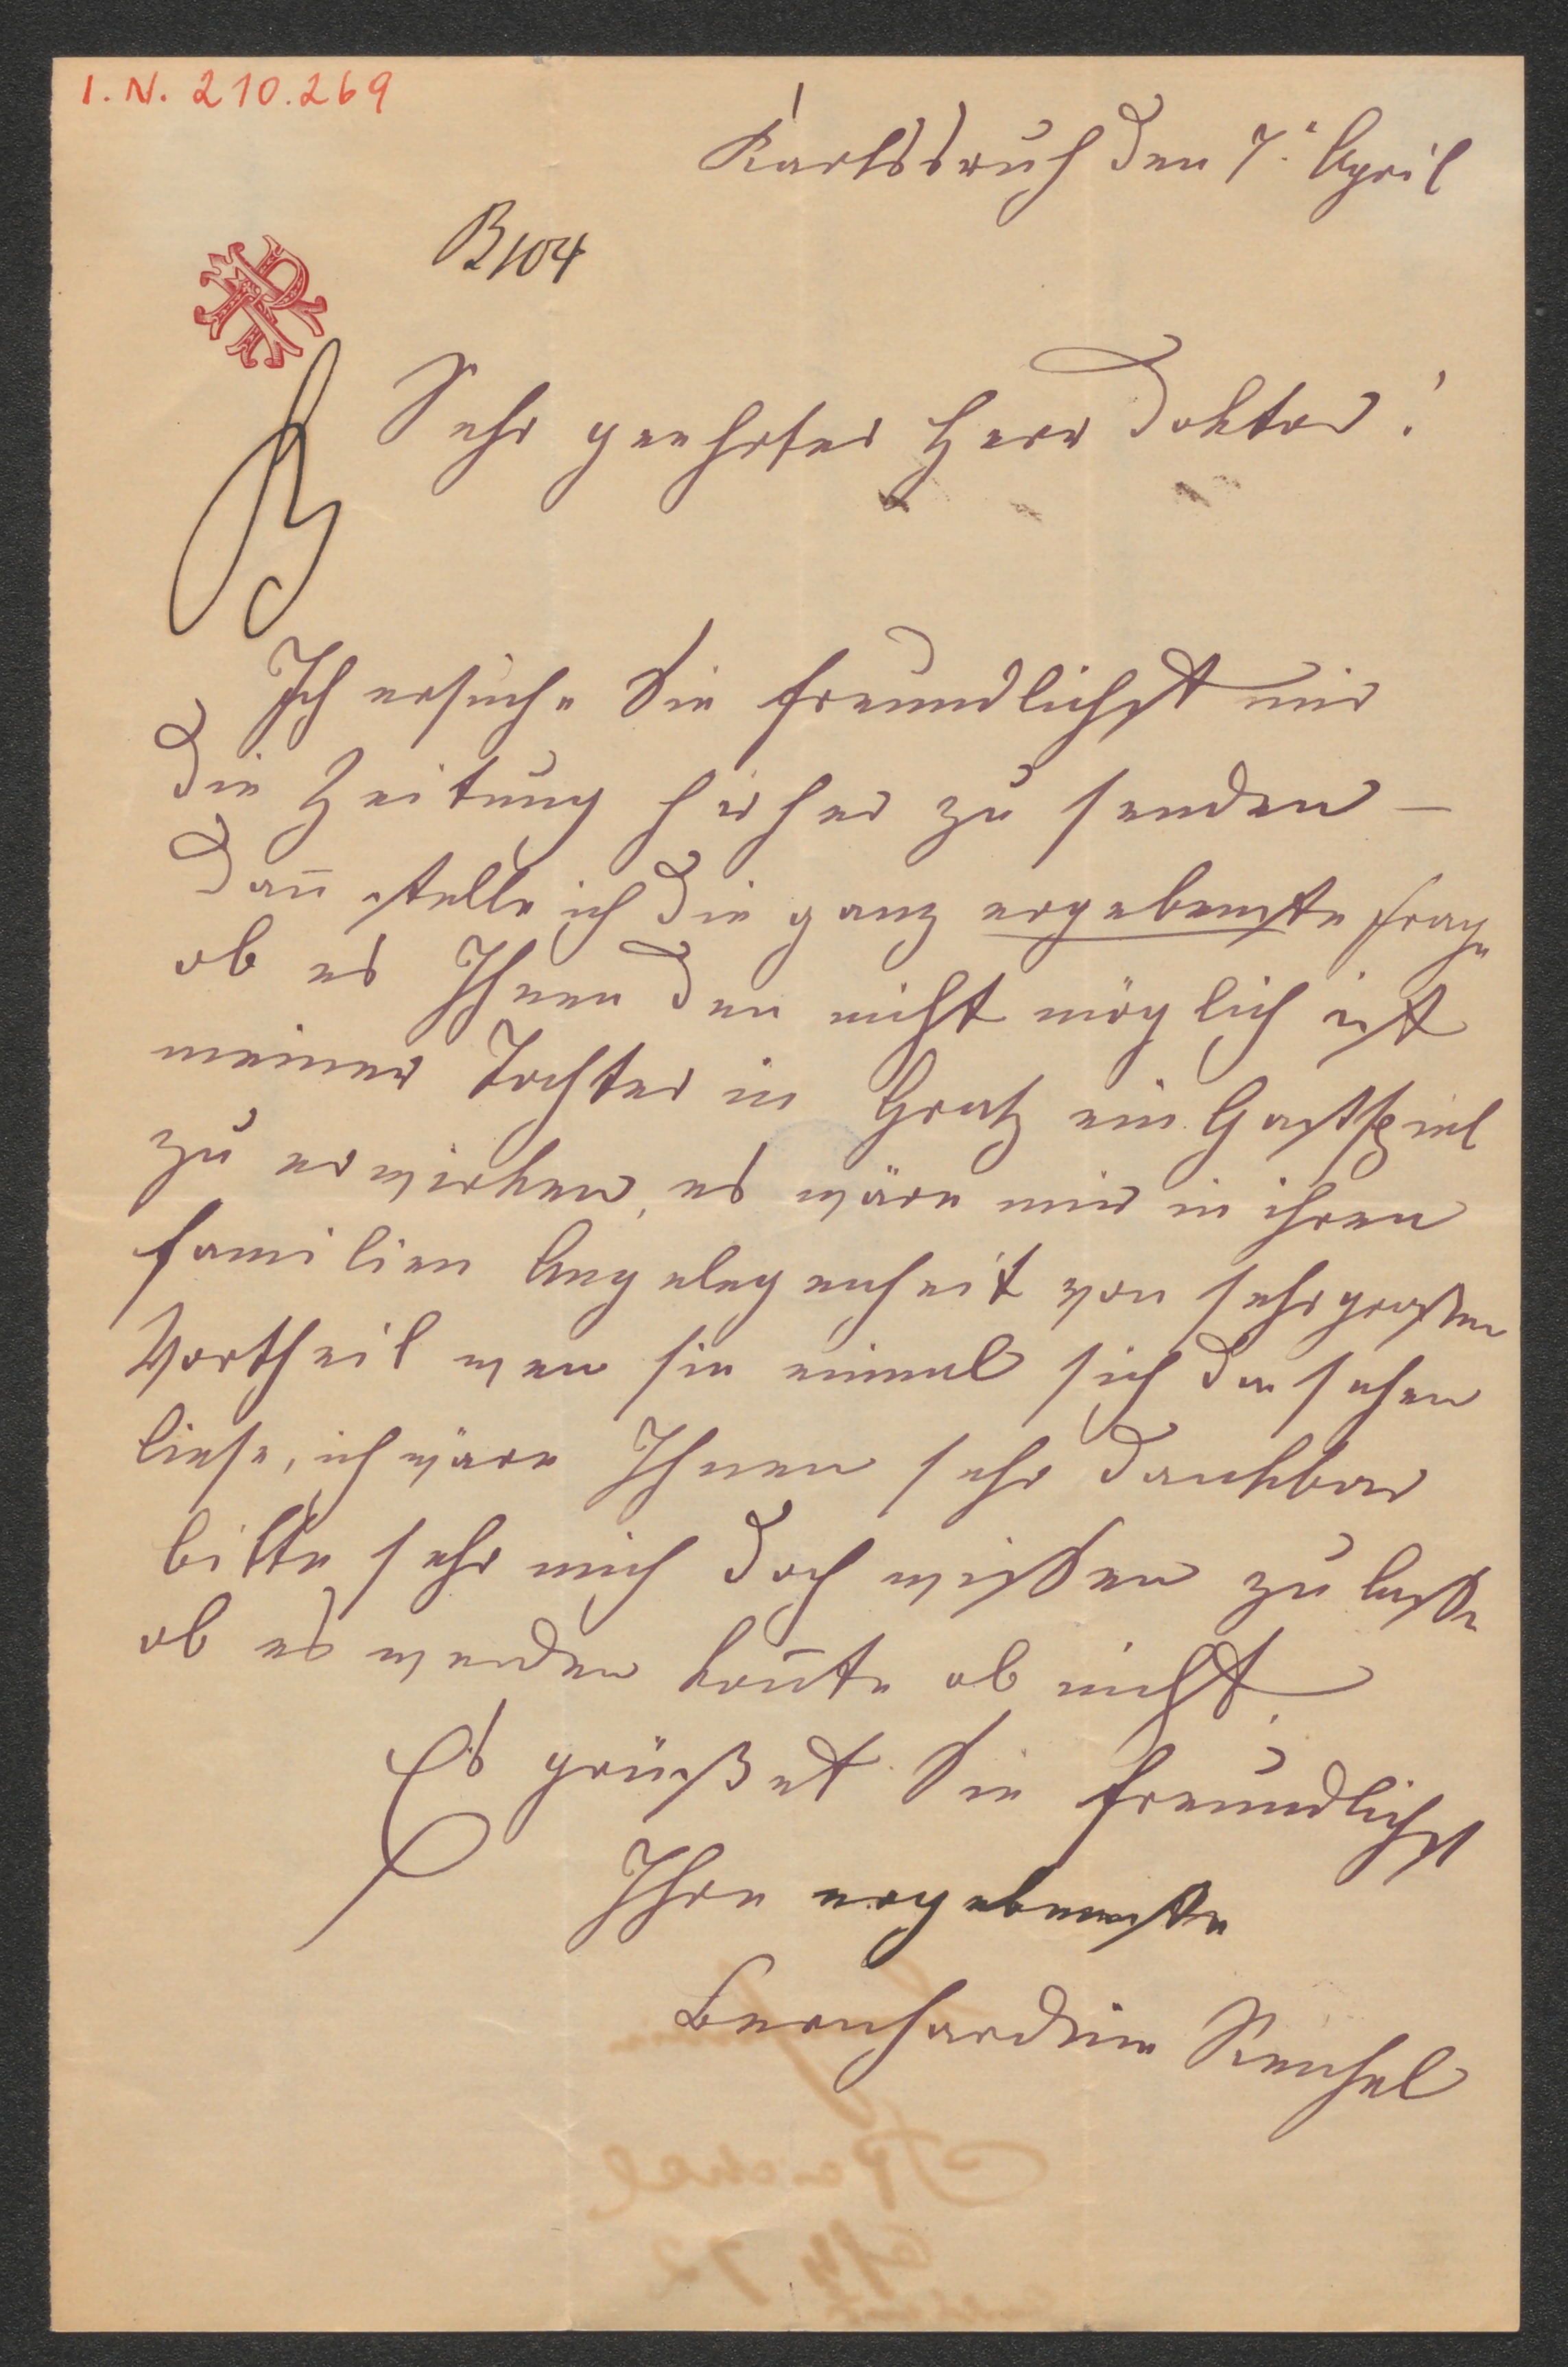 I. N. 210.269
Karlssruh den 7. April
B104
Sehr geehrter Herr Doktor!
Ich ersuche Sie freundlichst mir
die Zeitung hirher zu senden –
dan̄ stelle ich die ganz ergebenste Frage
ob es Ihnen den nicht möglich ist
meiner Tochter in Gratz ein Gastspiel
zu erwirken, es wäre mir in ihren
familien Angelegenheit von sehr großen
Vortheil wen sie einmal sich da sehen
liese, ich wäre Ihnen sehr dankbar
bitte sehr mich doch wißen zu laße
ob es werden kon̄te ob nicht.
Es grüßet Sie freundlichst
Ihre ergebenste
Bernhardine